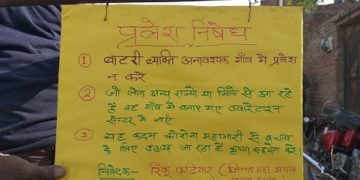 प्रवेश निषेध
① बाहरी व्यक्ति अनावश्यक गाँव मे प्रवेश
न करें
② जो लोग अन्य राज्यो या जिलों से आ रहे
है वह गाँव में बनाए गए क्वारेंटाइन
सेन्टर में जाएं
③ यह कदम कोरोना महामारी से बचाव
के लिए उठाया जा रहा है कृपया सहयोग करें।
निवेदक- रिंकू